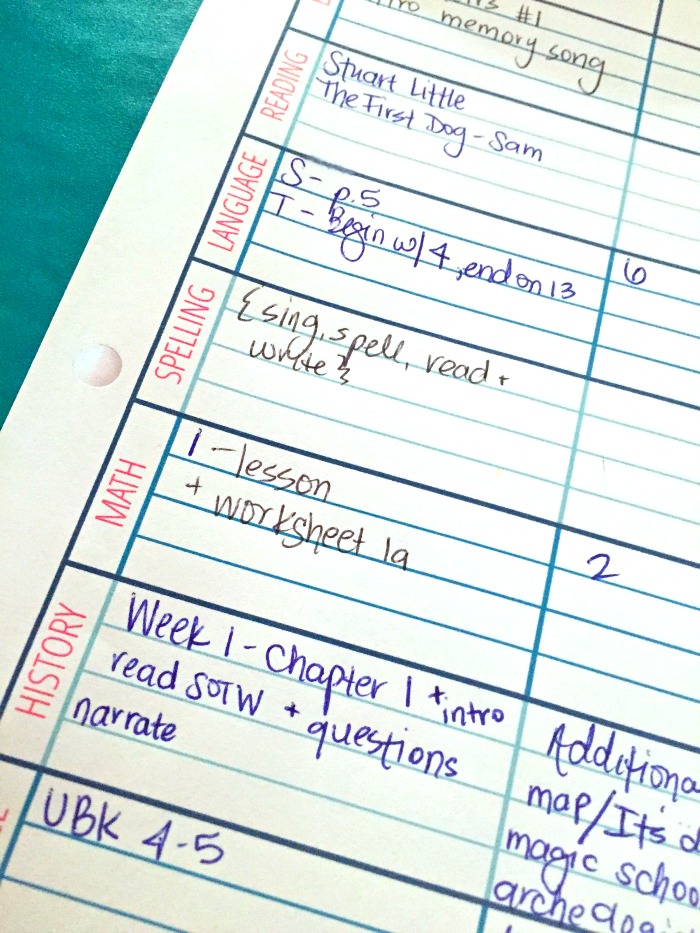 #1
memory song
READING
Stuart Little
The First Dog - Sam
LANGUAGE
S - p.5
T - Begin w/ 4, end on 13
6
SPELLING
{sing, spell, read +
write}
MATH
1 - lesson
+ worksheet 1a
2
HISTORY
Week 1 - Chapter 1 + intro
read SOTW + questions
narrate
Additiona
map/It's d
magic schoo
archeologi
UBK 4-5